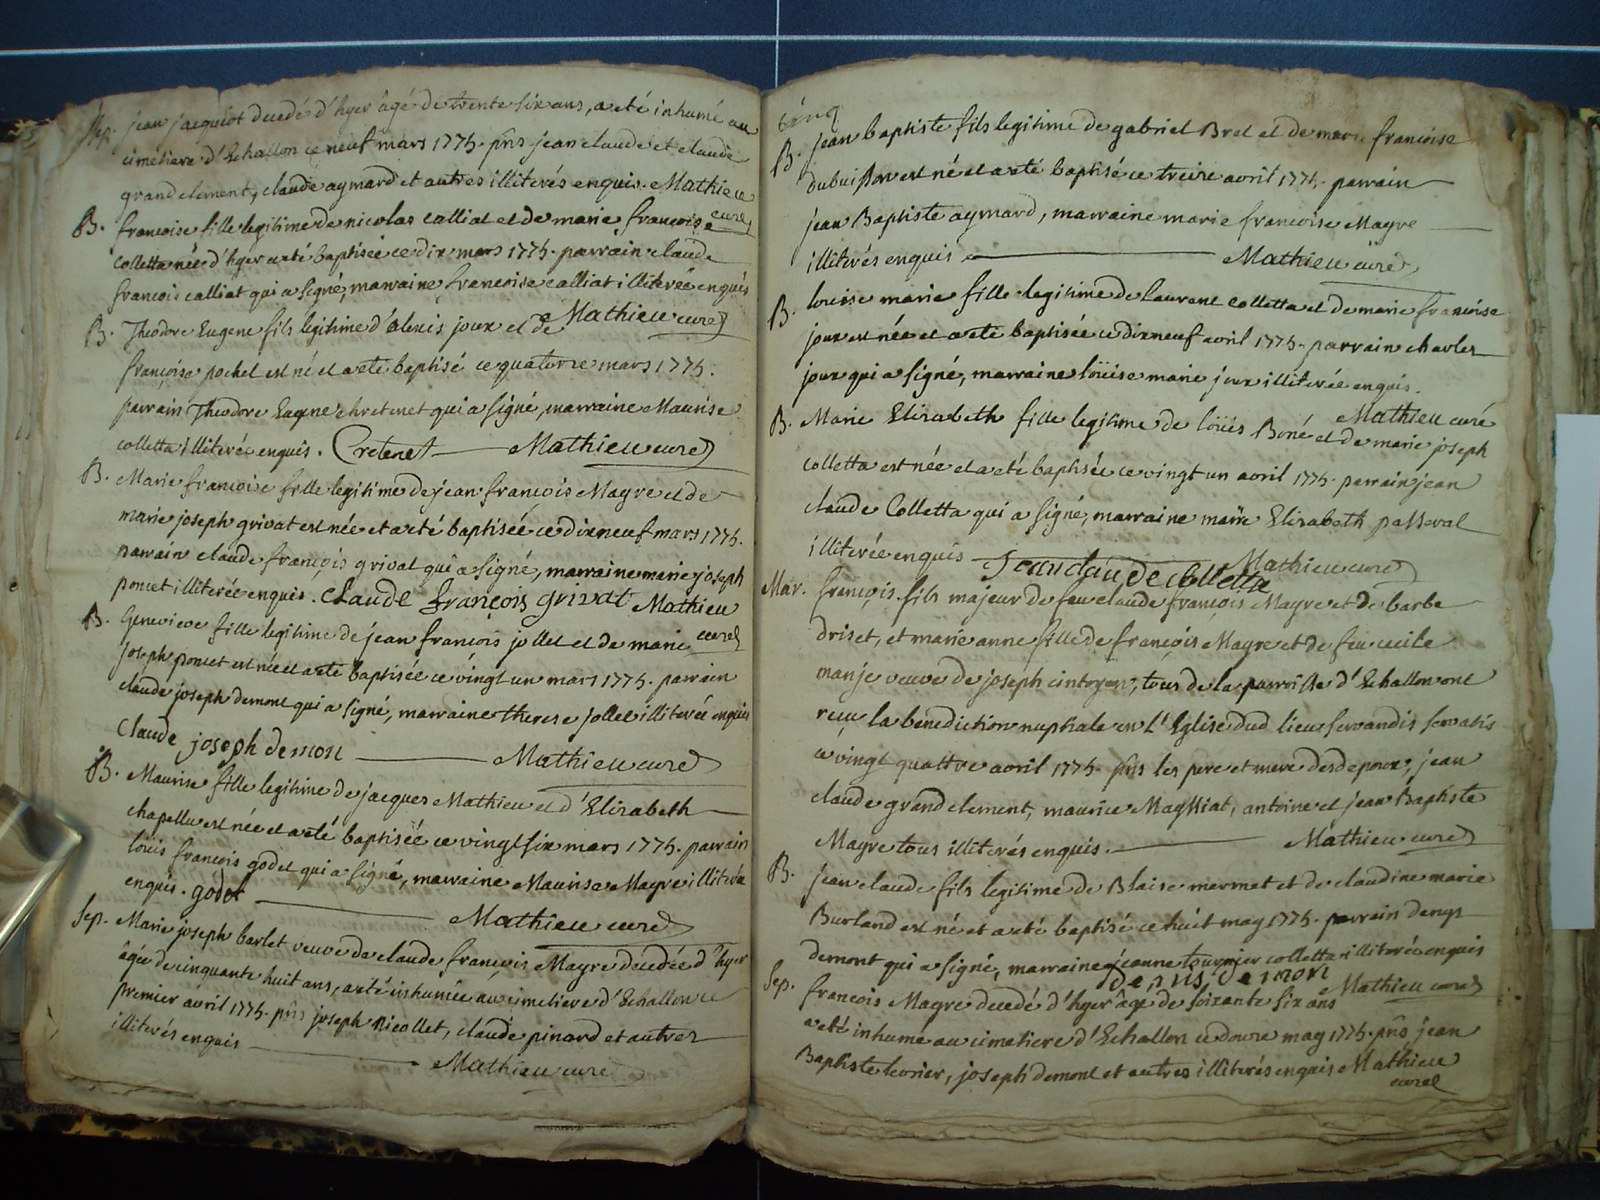 Sep. jean jacquiot decedé d'hyer âgé de trente six ans, a eté inhumé au
cimetiere d'Echallon ce neuf mars 1775. pñs jean claude et claude
grandclement, claude aymard et autres illiterés enquis. Mathieu
curé
B. francoise fille legitime de nicolas calliat et de marie françoise
colletta née d'hyer a eté baptisée ce dix mars 1775. parrain claude
francois calliat qui a signé, marraine francoise calliat illiterée enquis
Mathieu curé
B. Theodore Eugene fils legitime d'alexis joux et de
françoise pochet est né et a eté baptisé ce quatorze mars 1775.
parrain Theodore Eugene chretenet qui a signé, marraine Maurise
colletta illiterée enquis. Cretenet Mathieu curé
B. Marie françoise fille legitime de jean françois Mayre et de
marie joseph grivat est née et a eté baptisée ce dixneuf mars 1775.
parrain claude françois grivat qui a signé, marraine marie joseph
poncet illiterée enquis. Claude françois grivat Mathieu
curé
B. Genevieve fille legitime de jean françois jollet et de marie
joseph poncet est née et a eté baptisée ce vingt un mars 1775. parrain
claude joseph demont qui a signé, marraine therese jollet illiterée enquis
Claude joseph demon Mathieu curé
B. Maurise fille legitime de jacques Mathieu et d'Elizabeth
chapellu est née et a eté baptisée ce vingt six mars 1775. parrain
loüis françois godet qui a signé, marraine Maurise Mayre illiterée
enquis. godet Mathieu curé
Sep. Marie joseph barlet veuve de claude françois Mayre decedée d'hyer
âgée de cinquante huit ans, a eté inhumée au cimetiere d'Echallon ce
premier avril 1775. pñs joseph Nicollet, claude pinard et autres
illiterés enquis Mathieu curé
cinq
B. jean baptiste fils legitime de gabriel Bret et de marie françoise
dubuisson est né et a eté baptisé ce treize avril 1775. parrain
jean Baptiste aymard, marraine marie francoise Mayre
illiterés enquis Mathieu curé
B. loüise marie fille legitime de laurent colletta et de marie françoise
joux est née et a eté baptisée ce dixneuf avril 1775. parrain charles
joux qui a signé, marraine loüise marie joux illiterée enquis.
Mathieu curé
B. Marie Elizabeth fille legitime de loüis Boné et de marie joseph
colletta est née et a eté baptisée ce vingt un avril 1775. parrain jean
claude Colletta qui a signé, marraine marie Elizabeth passeral
illiterée enquis Jean claude Colletta Mathieu curé
Mar. françois fils majeur de feu claude françois Mayre et de barbe
driset, et marie anne fille de françois Mayre et de feu cecile
manje veuve de joseph cintoyen, tous de la parroisse d'Echallon ont
reçu la benediction nuptiale en l'Eglise dud lieu servandis servatis
ce vingt quattre avril 1775. pñs les pere et mere desd epoux, jean
claude grandclement, maurice Maylliat, antoine et jean Baptiste
Mayre tous illiterés enquis. Mathieu curé
B. jean claude fils legitime de Blaise mermet et de claudine marie
Burland est né et a eté baptisé ce huit may 1775. parrain denys
demont qui a signé, marraine jeanne tournier colletta illiterée enquis
denis demon Mathieu curé
Sep. francois Mayre decedé d'hyer âgé de soixante six ans
a eté inhumé au cimetiere d'Echallon ce douze may 1775. pñs jean
Baptiste leorier, joseph demont et autres illiterés enquis Mathieu
curé